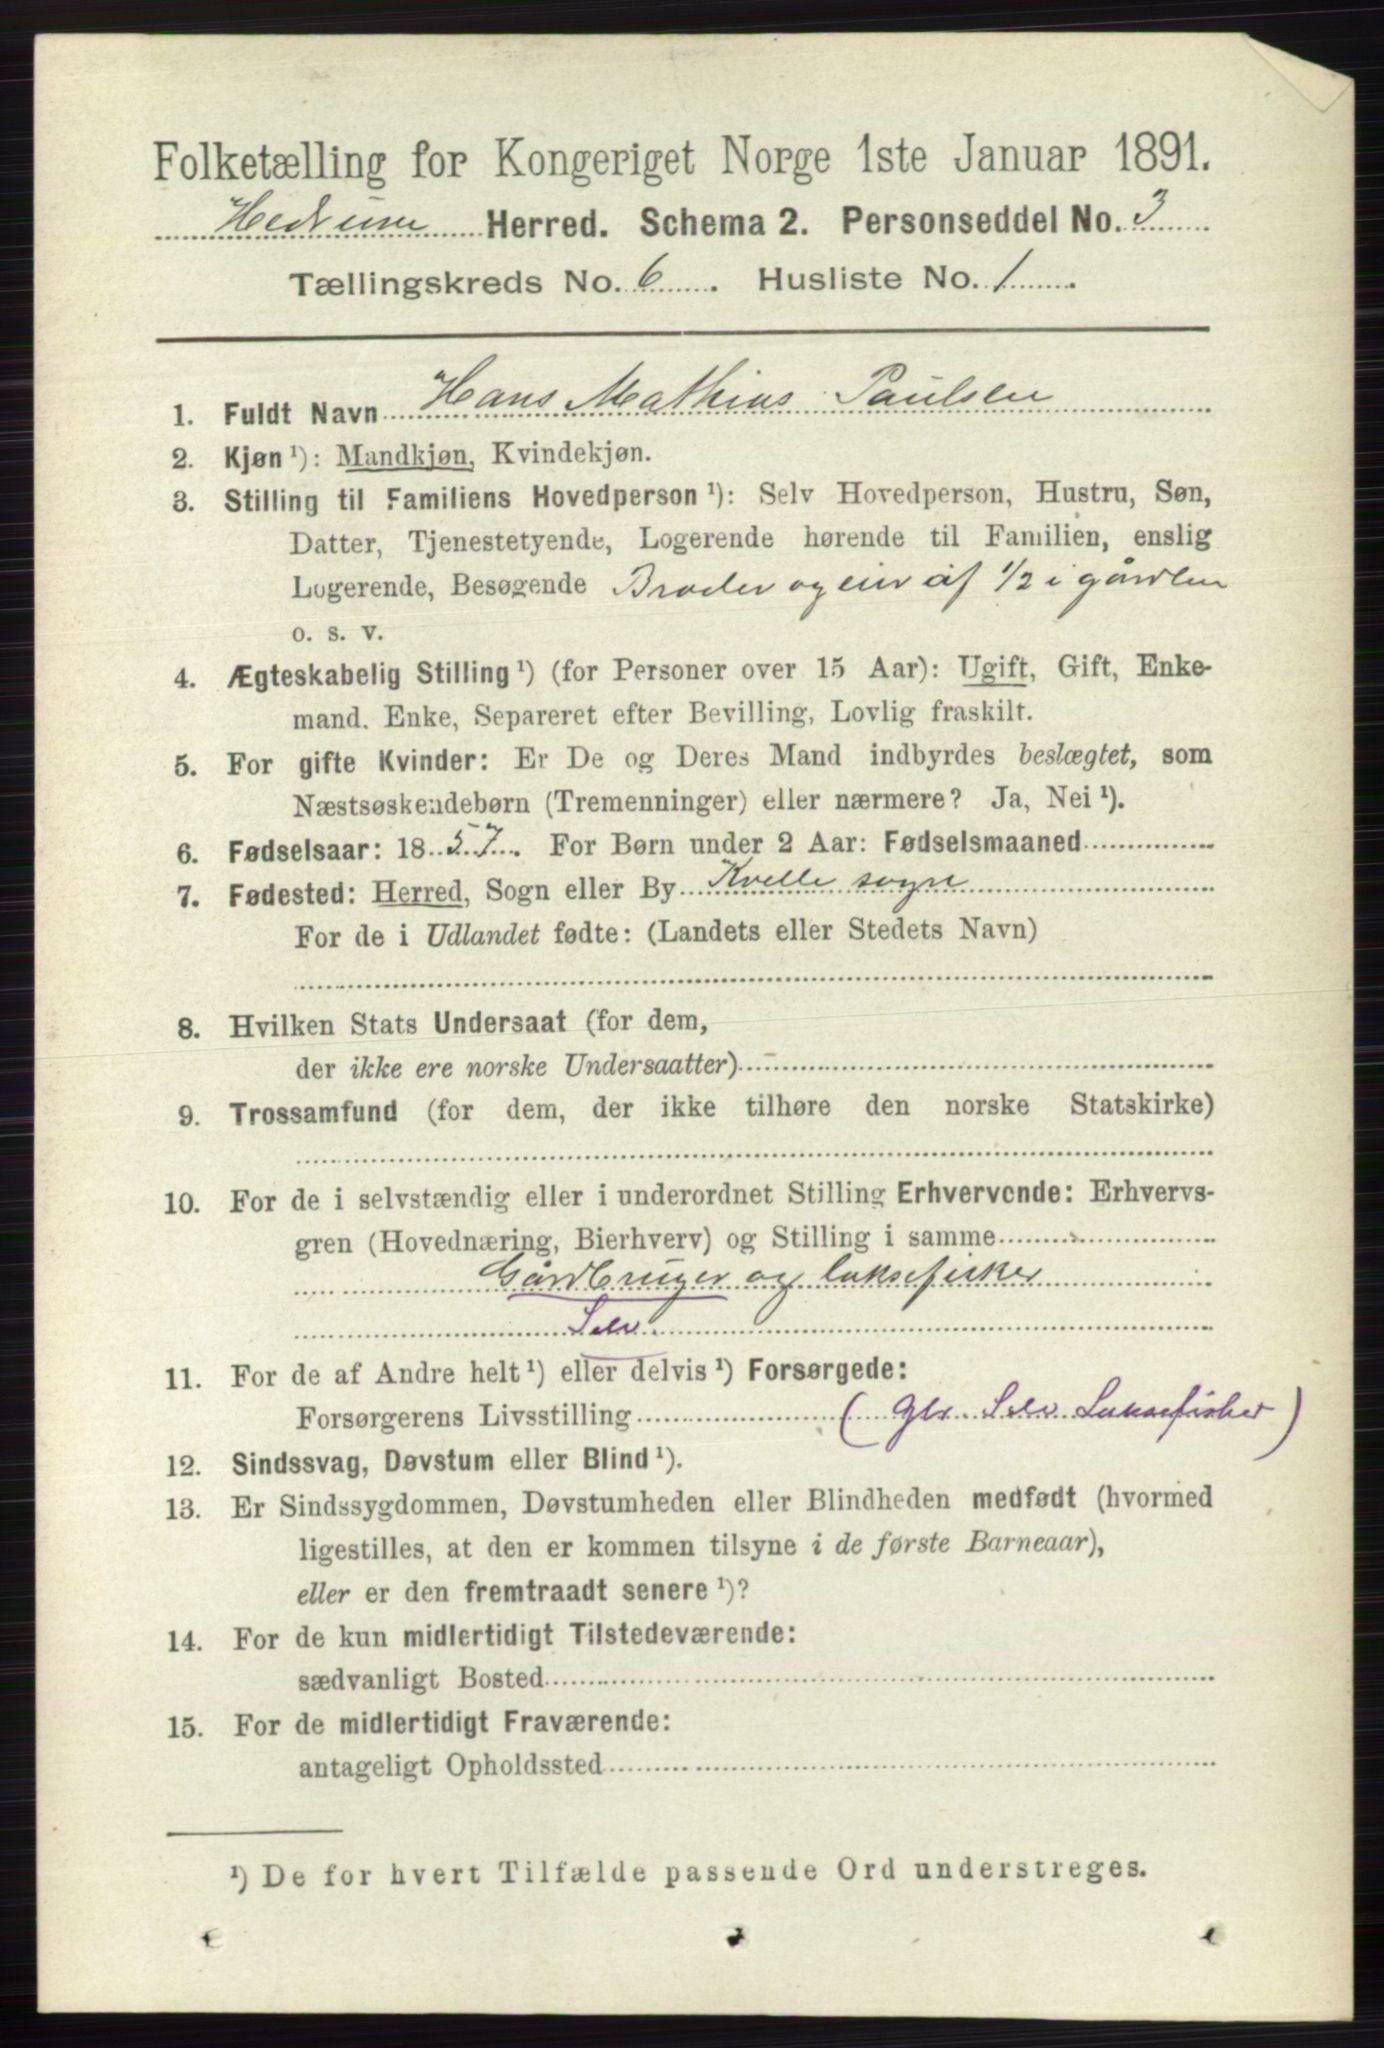 Folketælling for Kongeriget Norge 1ste Januar 1891.
Hedrum Herred. Schema 2. Personseddel No. 3
Tællingskreds No. 6. Husliste No. 1.
1. Fuldt Navn Hans Mathias Paulsen
2. Kjøn ¹): Mandkjøn, Kvindekjøn.
3. Stilling til Familiens Hovedperson ¹): Selv Hovedperson, Hustru, Søn,
Datter, Tjenestetyende, Logerende hørende til Familien, enslig
Logerende, Besøgende Broder og eier af 1/2 i gården
o. s. v.
4. Ægteskabelig Stilling ¹) (for Personer over 15 Aar): Ugift, Gift, Enke-
mand. Enke, Separeret efter Bevilling, Lovlig fraskilt.
5. For gifte Kvinder: Er De og Deres Mand indbyrdes beslægtet, som
Næstsøskendebørn (Tremenninger) eller nærmere? Ja, Nei ¹).
6. Fødselsaar: 1857. For Børn under 2 Aar: Fødselsmaaned
7. Fødested: Herred, Sogn eller By Kvelle sogn
For de i Udlandet fødte: (Landets eller Stedets Navn)
8. Hvilken Stats Undersaat (for dem,
der ikke ere norske Undersaatter)
9. Trossamfund (for dem, der ikke tilhøre den norske Statskirke)
10. For de i selvstændig eller i underordnet Stilling Erhvervende: Erhvervs-
gren (Hovednæring, Bierhverv) og Stilling i samme
Gårdbruger og laksefisker
Selv.
11. For de af Andre helt ¹) eller delvis ¹) Forsørgede:
Forsørgerens Livsstilling (Gbr. Selv Laksefisker)
12. Sindssvag, Døvstum eller Blind ¹).
13. Er Sindssygdommen, Døvstumheden eller Blindheden medfødt (hvormed
ligestilles, at den er kommen tilsyne i de første Barneaar),
eller er den fremtraadt senere ¹)?
14. For de kun midlertidigt Tilstedeværende:
sædvanligt Bosted
15. For de midlertidigt Fraværende:
antageligt Opholdssted
¹) De for hvert Tilfælde passende Ord understreges.